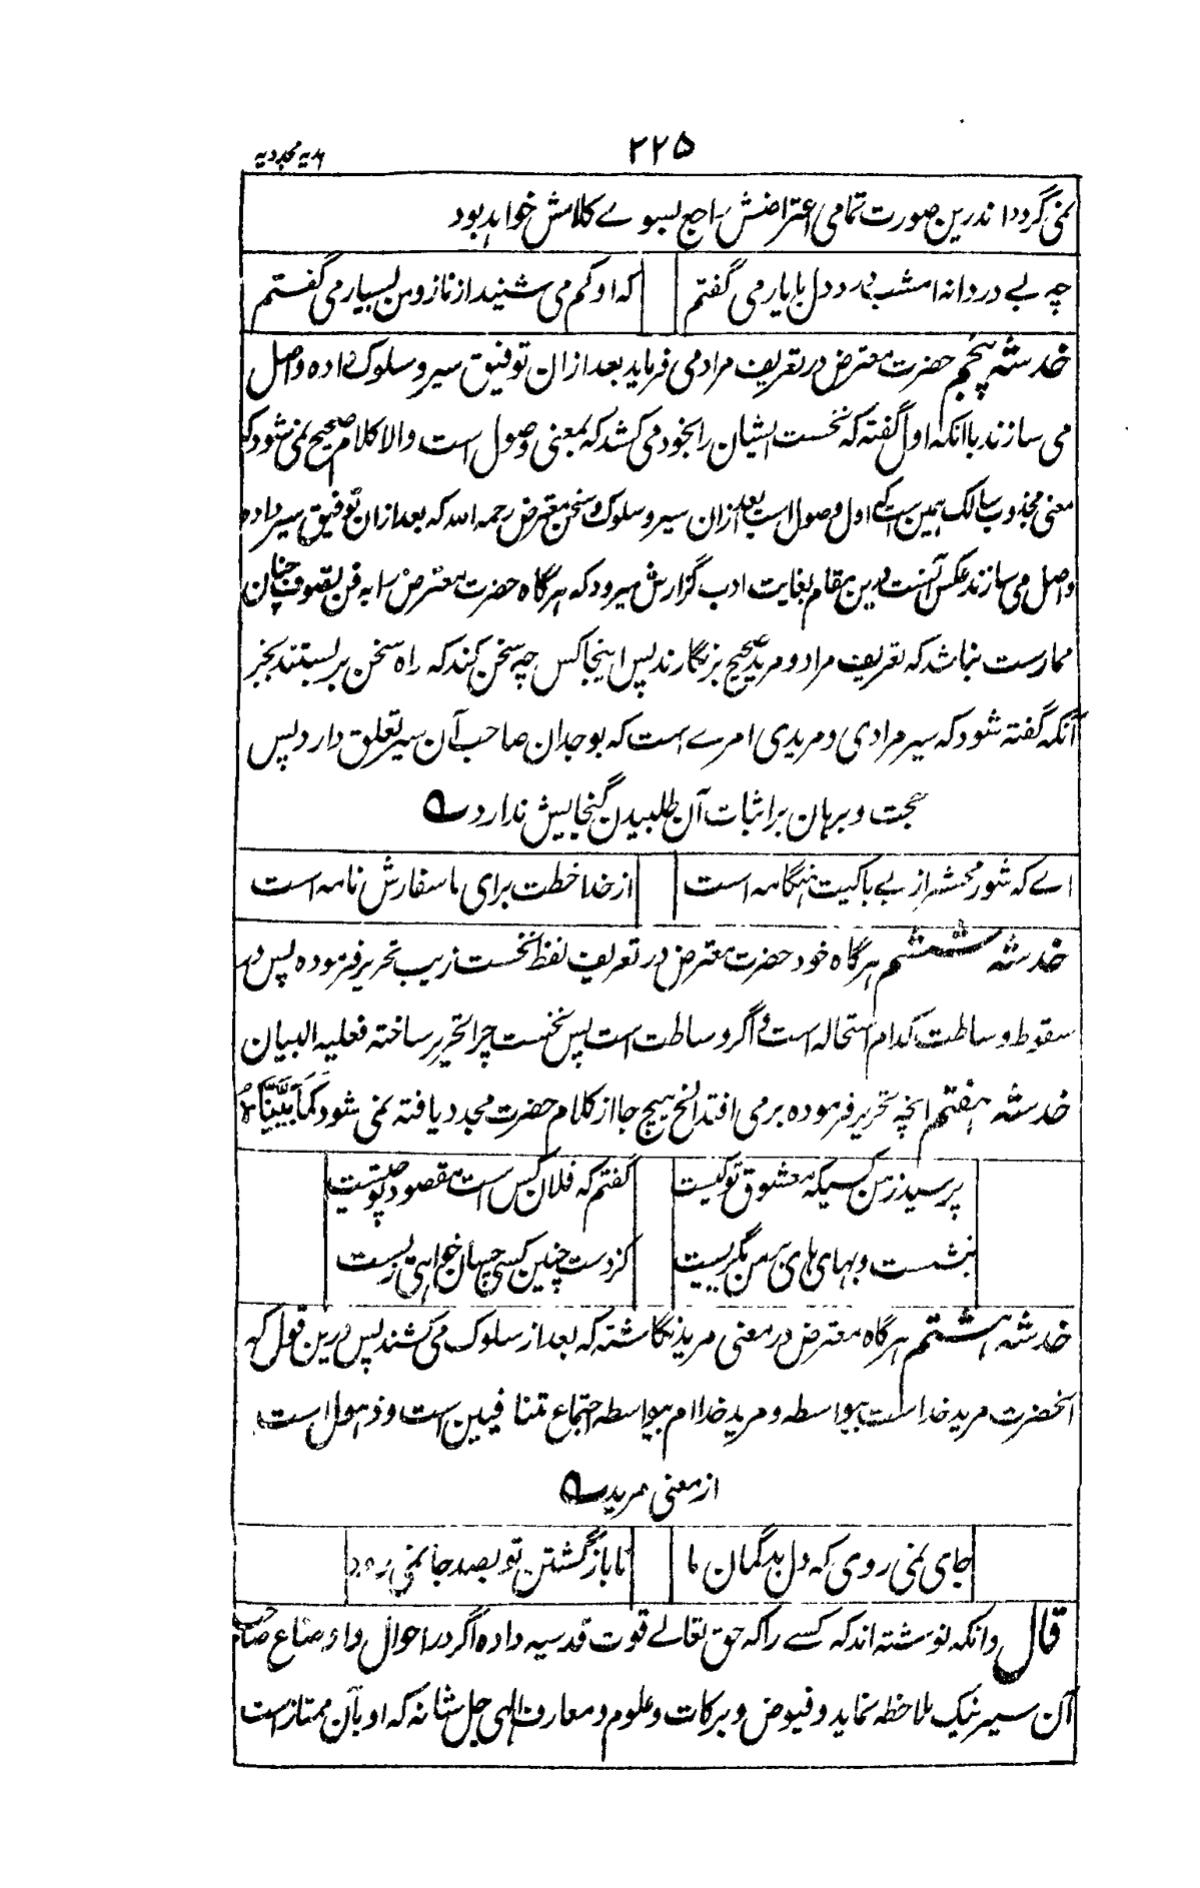 ۲۲۵
ہدیہ مجددیہ
نمی گردد اندرین صورت تمامی اعتراضش راجع بسوے کلامش خواہد بود
چہ بے دردانہ امشب درد دل با یار می گفتم
کہ او کم می شنید از ناز و من بسیار می گفتم
خدشہ پنجم حضرت معترض در تعریف مراد می فرماید بعد ازان توفیق سیر و سلوک دادہ واصل
می سازند با آنکہ اول گفتہ کہ نخست ایشان را بخود می کشد کہ بمعنی وصول است والا کلام صحیح نمی شود کہ
معنی مجذوب سالک ہمین است کہ اول وصول است بعد ازان سیر و سلوک و سخن معترض رحمہ اللہ کہ بعد ازان توفیق سیر دادہ
واصل می سازند عکس آنست درین مقام بغایت ادب گزارش میرود کہ ہرگاہ حضرت معترض را بہ فن تصوف چنان
ممارست نباشد کہ تعریف مراد و مرید صحیح بر نگارند پس اینجا کس چہ سخن کند کہ راہ سخن بر بستند بجز
آنکہ گفتہ شود کہ سیر مرادی و مریدی امرے است کہ بوجدان صاحب آن سیر تعلق دارد پس
حجت و برہان بر اثبات آن طلبیدن گنجایش ندارد ؎
اے کہ شور محشر از بے باکیت ہنگامہ است
از خدا خطت برای ما سفارش نامہ است
خدشہ ششم ہرگاہ خود حضرت معترض در تعریف لفظ نخست زیب تحریر فرمودہ پس در
سقوط وساطت کدام استحالہ است و اگر وساطت است پس نخست چرا تحریر ساختہ فعلیہ البیان
خدشہ ہفتم انچہ تحریر فرمودہ برمی افتد الخ ہیچ جا از کلام حضرت مجدد یافتہ نمی شود کَمَا بَیَّنَّاہُ
پرسید ز من کسیکہ معشوق تو کیست
گفتم کہ فلان کس است مقصود تو چیست
بنشست و بہای ہای بر من بگریست
کز دست چنین کسی چسان خواہی زیست
خدشہ ہشتم ہرگاہ معترض در معنی مرید نگاشتہ کہ بعد از سلوک می کشند پس درین قول کہ
آنحضرت مرید خداست بیواسطہ و مرید خدا ام بیواسطہ اجتماع متنافیین است و ذہول است
از معنی مرید ؎
جای نمی روی کہ دل بدگمان ما
تا باز گشتن تو بصد جا نمی رود
قال وانکہ نوشتہ اند کہ کسے را کہ حق تعالے قوت قدسیہ دادہ اگر در احوال و اوضاع صاحب
آن سیر نیک ملاحظہ نماید و فیوض و برکات و علوم و معارف الہی جل شانہ کہ او بآن ممتاز است